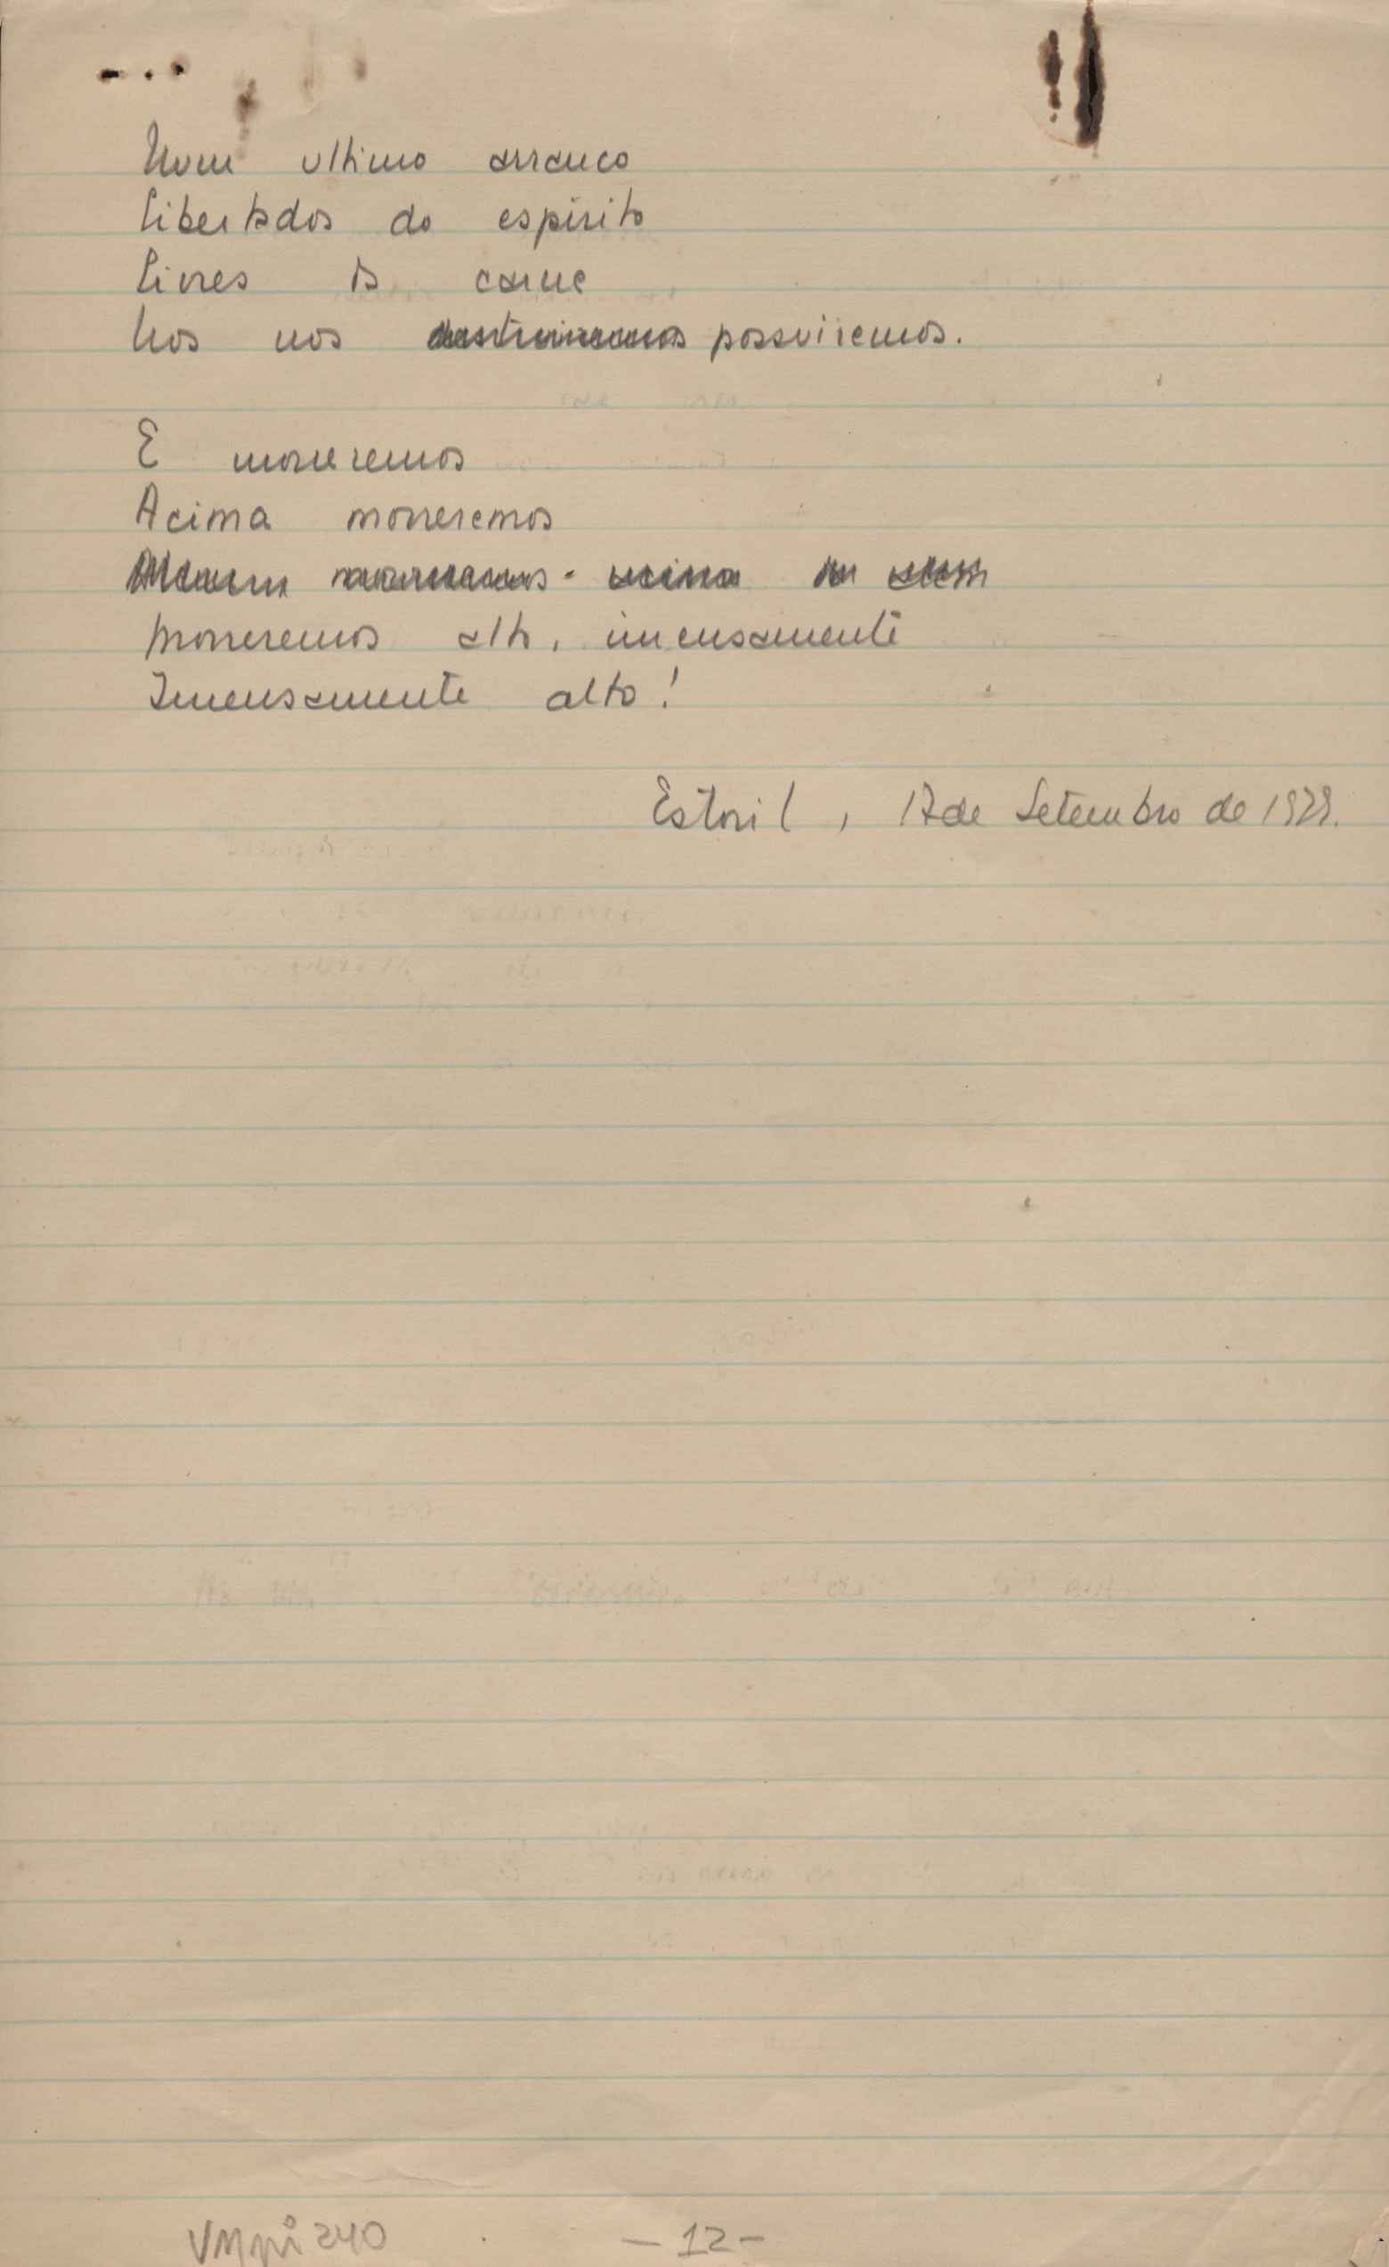 Num ultimo arranco
libertados do espirito
livres da carne
Nos nos possuiremos.
E morreremos
Acima morreremos
Morreremos alto, imensamente
Imensamente alto!
Estoril, 17 de Setembro de 1929.
- 12 -